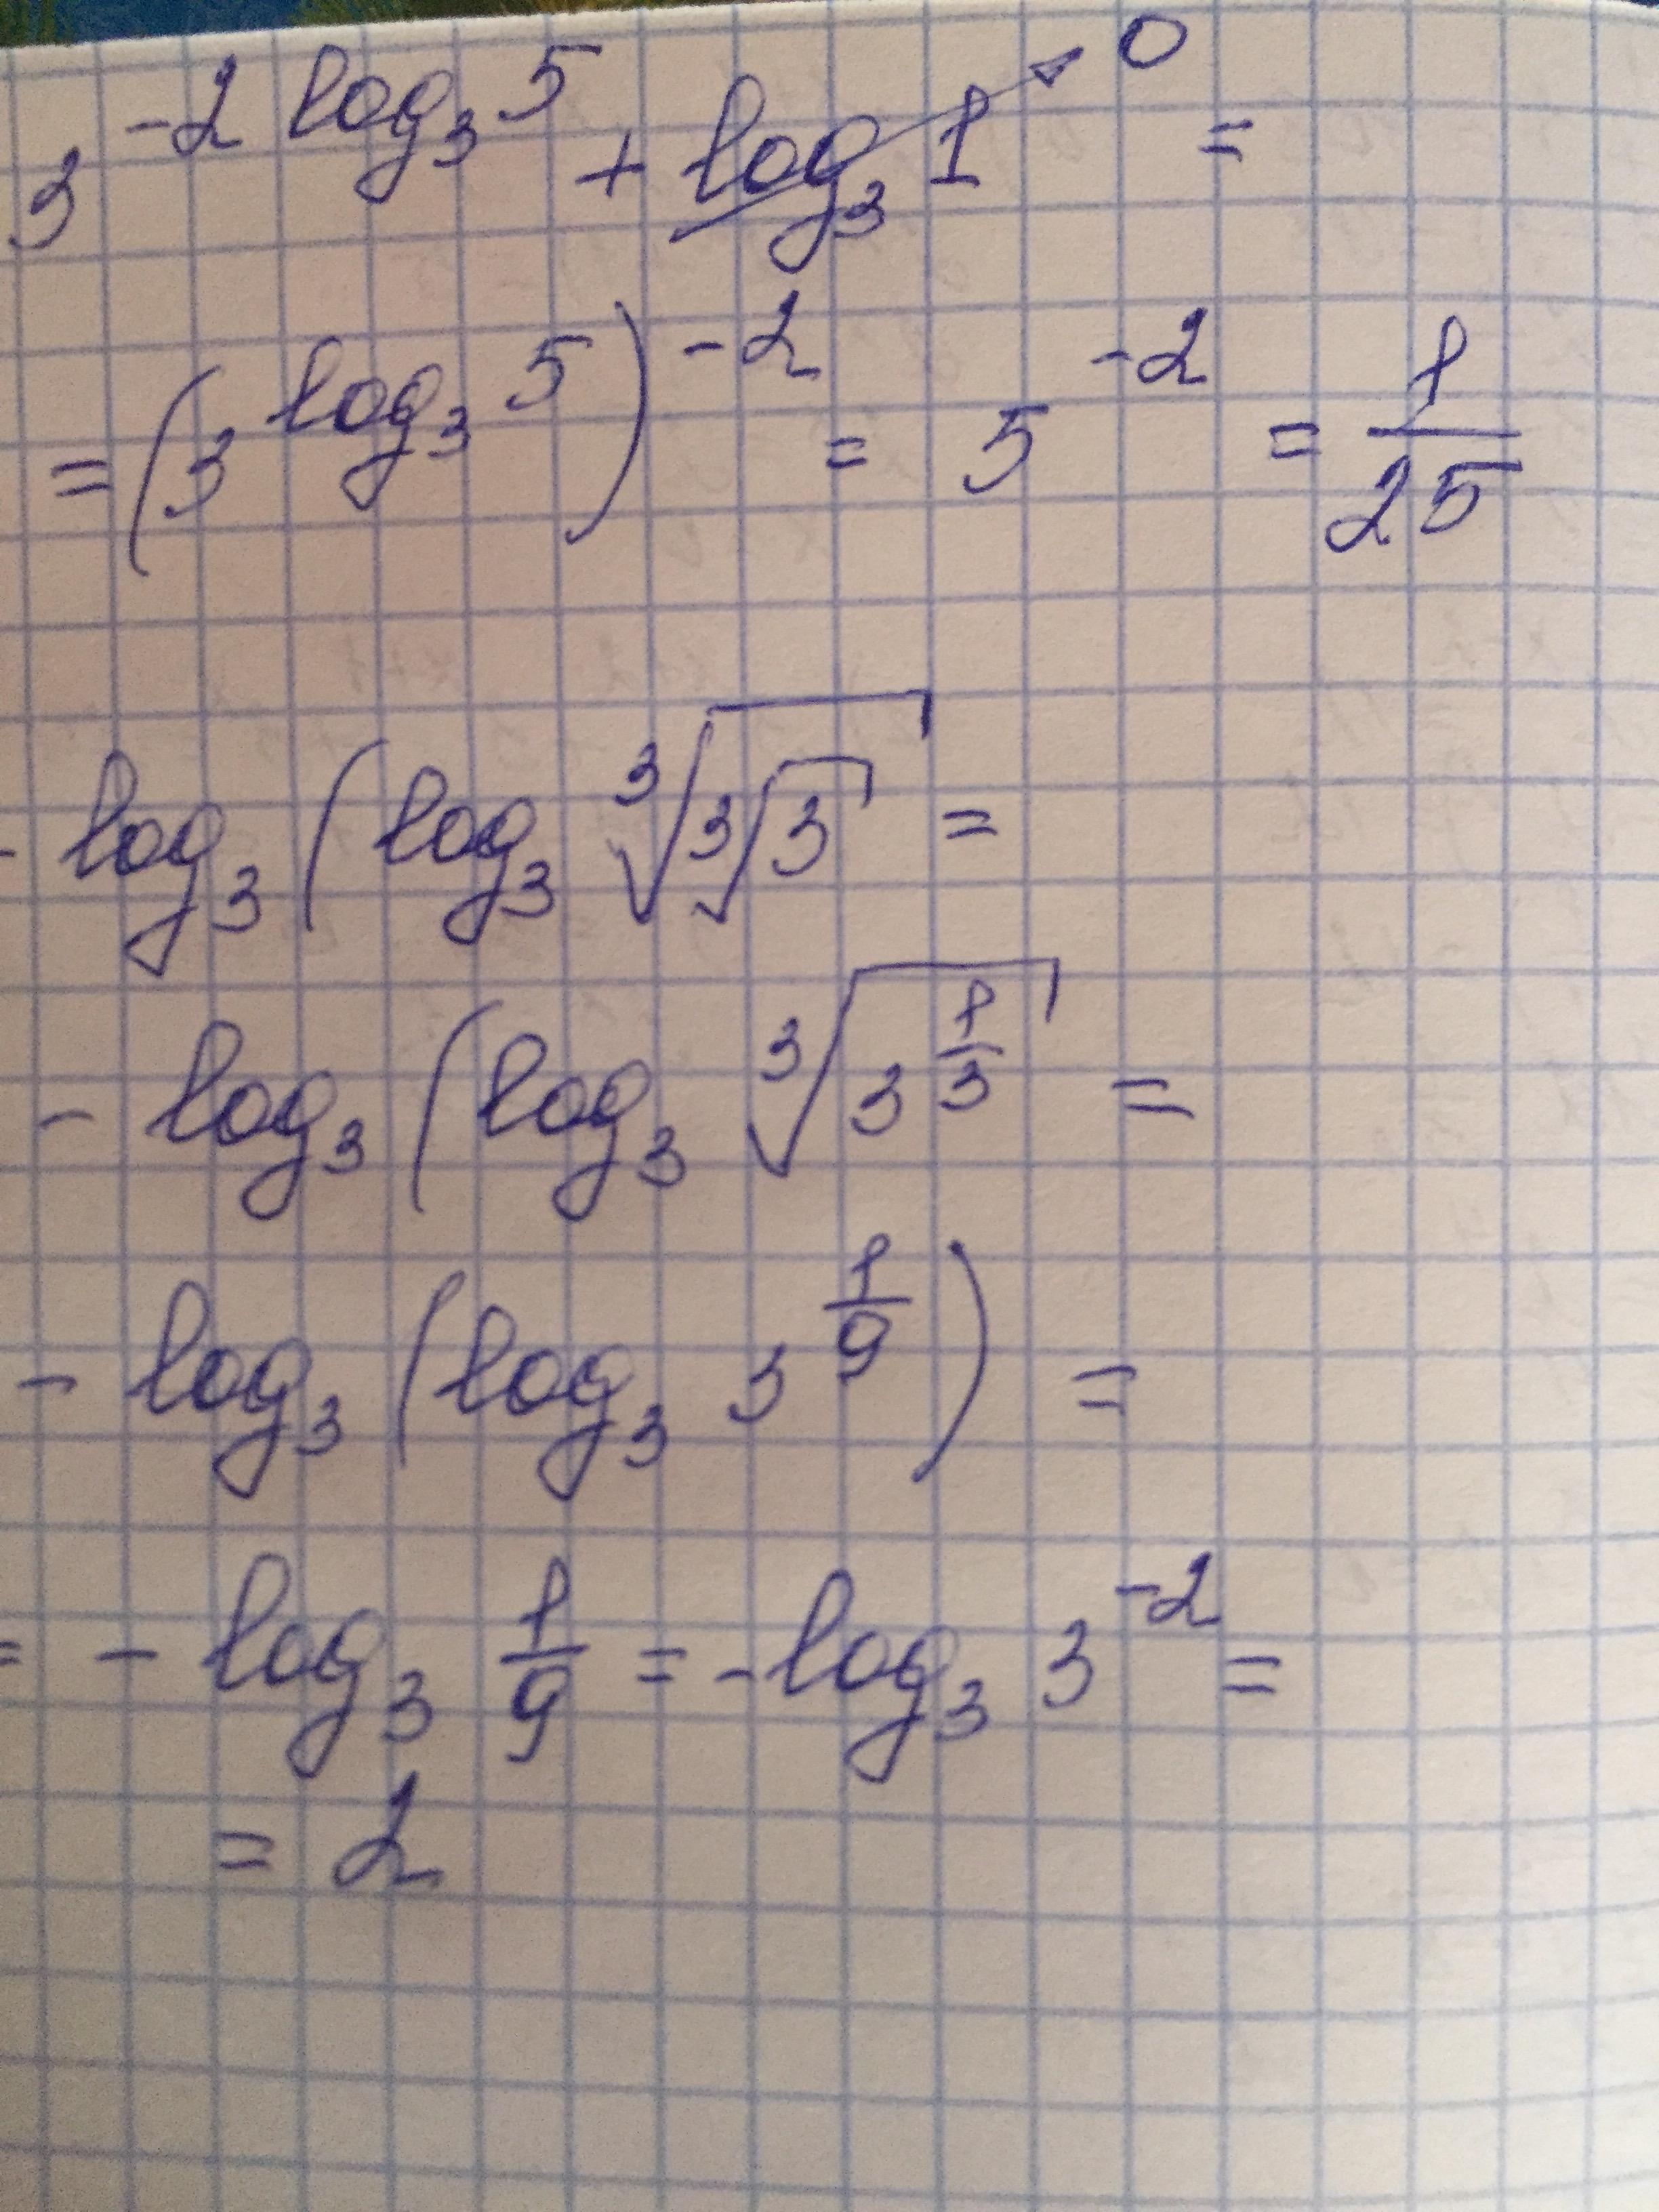 3^{-2 log_3 5} + log_3 1 → 0 =
= (3^{log_3 5})^{-2} = 5^{-2} = \frac{1}{25}
- log_3 (log_3 \sqrt[3]{\sqrt[3]{3}} =
- log_3 (log_3 \sqrt[3]{3^{\frac{1}{3}}} =
- log_3 (log_3 3^{\frac{1}{9}}) =
= - log_3 \frac{1}{9} = - log_3 3^{-2} =
= 2